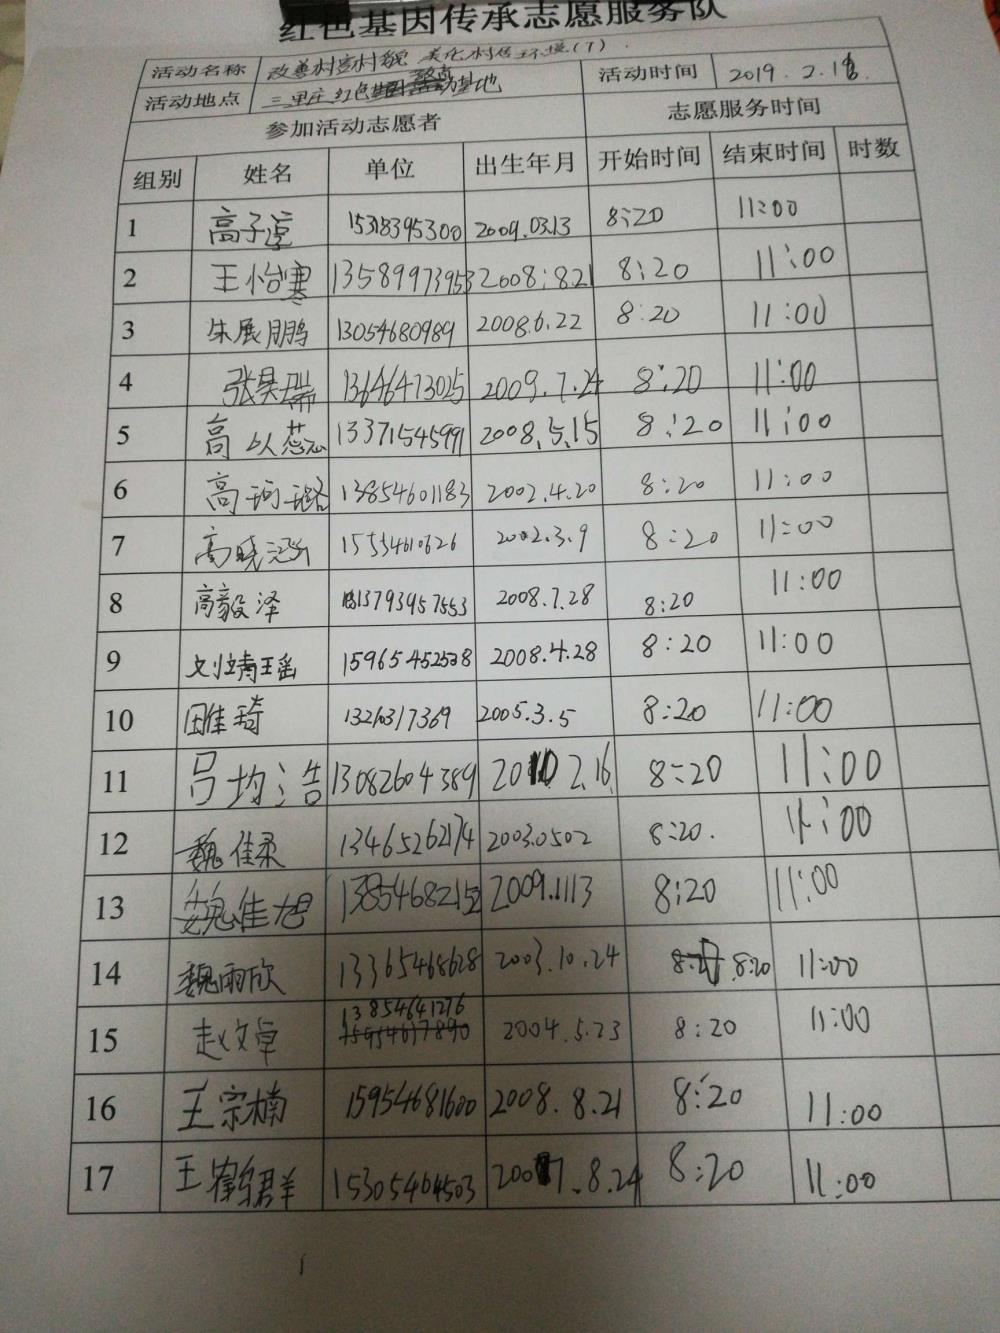 红色基因传承志愿服务队
活动名称 改善村容村貌 美化村居环境(7) 活动时间 2019.2.1
活动地点 三里庄红色 基地
参加活动志愿者 志愿服务时间
组别 姓名 单位 出生年月 开始时间 结束时间 时数
1 高子 15318395300 2009.03.13 8:20 11:00
2 王怡寒 13589973953 2008:8.21 8:20 11:00
3 朱展鹏 13054680989 2008.6.22 8:20 11:00
4 张昊瑞 13646473025 2009.7.24 8:20 11:00
5 高以蕊 13371545991 2008.5.15 8:20 11:00
6 高珂璐 13854601183 2002.4.20 8:20 11:00
7 高晓涵 15534610626 2002.3.9 8:20 11:00
8 高毅泽 13793957553 2008.7.28 8:20 11:00
9 刘靖瑶 15965452528 2008.4.28 8:20 11:00
10 田雅琦 2005.3.5 8:20 11:00
11 吕均浩 13082604389 2010 2.16 8:20 11:00
12 魏佳柔 13465262174 2003.0502 8:20. 11:00
13 魏佳旭 13854682152 2009.1113 8:20 11:00
14 魏雨欣 13365468628 2003.10.24 8:20 11:00
15 赵文卓 13854641276 2004.5.23 8:20 11:00
16 王宗楠 15954681600 2008.8.21 8:20 11:00
17 王 群 15305464503 2007.8.24 8:20 11:00